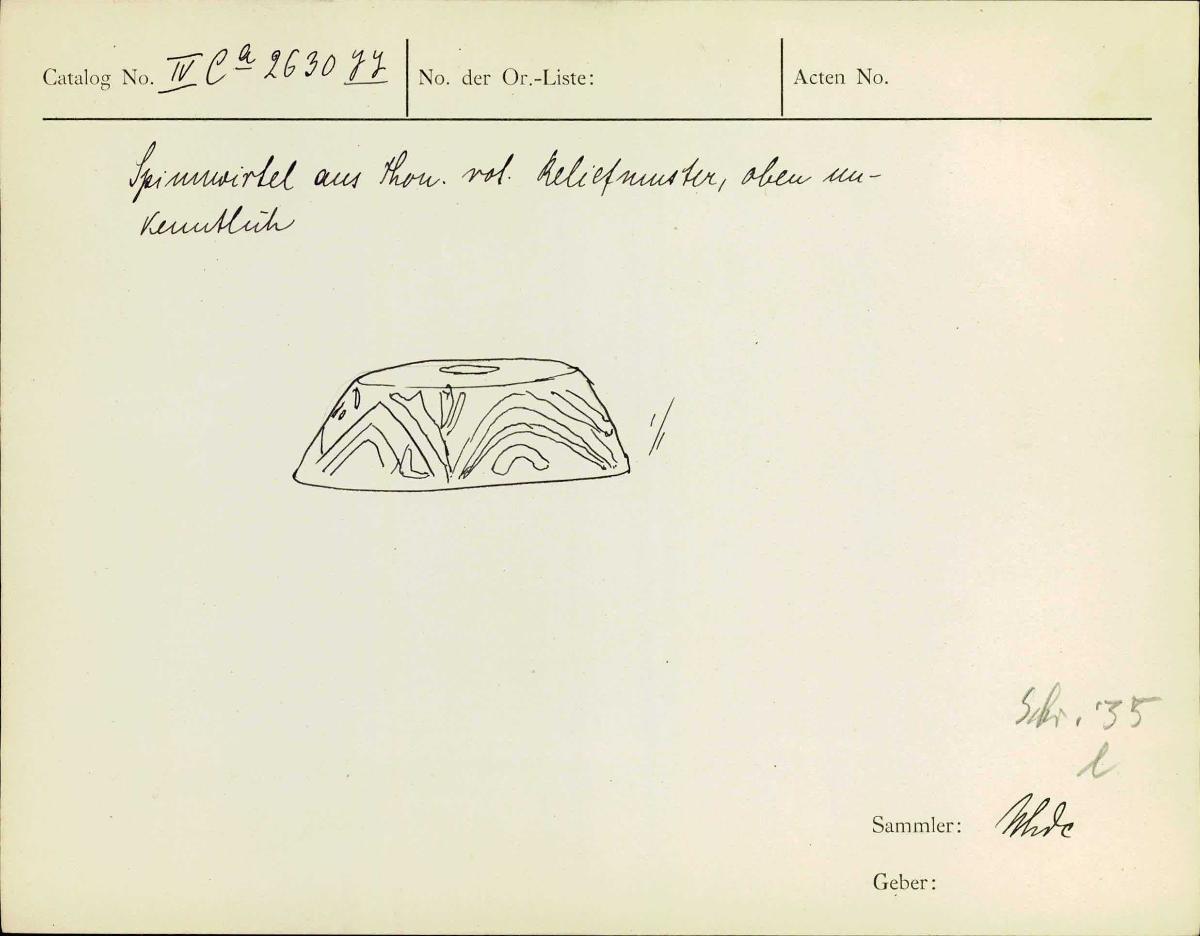 Catalog No. IV Ca 2630 yy
No. der Or.-Liste:
Acten No.
Spinnwirtel aus Thon. rot. Reliefmuster, oben un-
kenntlich
1/1
Schr. '35
l
Sammler: Uhde
Geber: